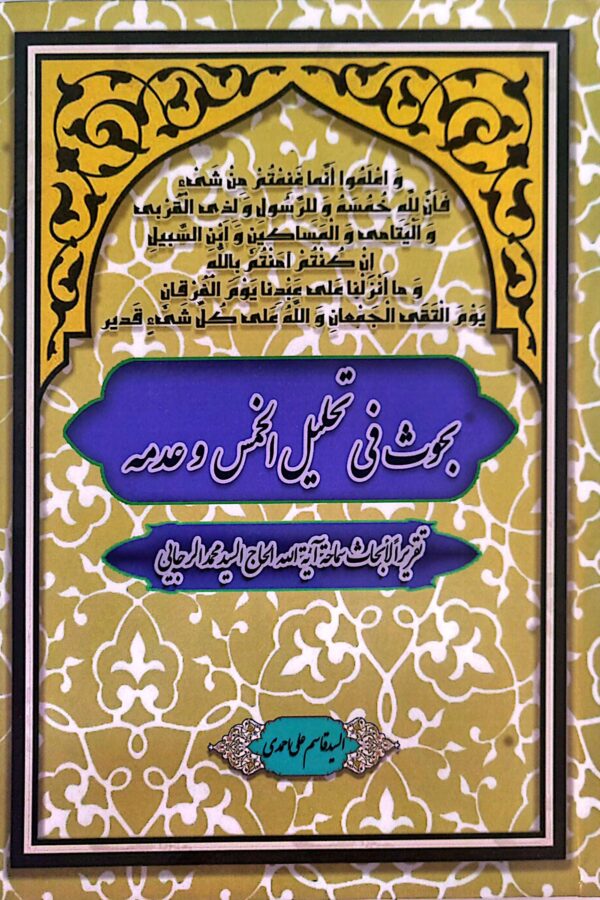 وَ اعْلَمُوا أَنَّما غَنِمْتُمْ مِنْ شَيْءٍ
فَأَنَّ لِلَّهِ خُمُسَهُ وَ لِلرَّسُولِ وَ لِذِي الْقُرْبى
وَ الْيَتامى وَ الْمَساكِينِ وَ ابْنِ السَّبِيلِ
إِنْ كُنْتُمْ آمَنْتُمْ بِاللهِ
وَ ما أَنْزَلْنا عَلى عَبْدِنا يَوْمَ الْفُرْقانِ
يَوْمَ الْتَقَى الْجَمْعانِ وَ اللَّهُ عَلى كُلِّ شَيْءٍ قَدير
بحوث فی تحلیل الخمس و عدمه
تقریر الأبحاث سماحة آیة الله الحاج السید محمد الرجائی
السید قاسم علی احمدی